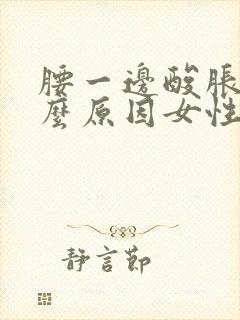 腰一邊酸脹
麼原因女性
靜言節